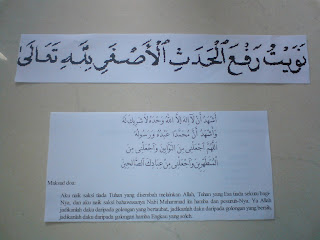 نَوَيْتُ رَفْعَ الْحَدَثِ الْأَصْغَرِ لِلَّهِ تَعَالَى
أَشْهَدُ أَنْ لَا إِلَهَ إِلَّا اللهُ وَحْدَهُ لَا شَرِيْكَ لَهُ
وَأَشْهَدُ أَنَّ مُحَمَّدًا عَبْدُهُ وَرَسُوْلُهُ
اَللَّهُمَّ اجْعَلْنِي مِنَ التَّوَّابِيْنَ وَاجْعَلْنِي مِنَ
الْمُتَطَهِّرِيْنَ وَاجْعَلْنِي مِنْ عِبَادِكَ الصَّالِحِيْنَ
Maksud doa:
Aku naik saksi tiada Tuhan yang disembah melainkan Allah, Tuhan yang Esa tiada sekutu bagi-
Nya, dan aku naik saksi bahawasanya Nabi Muhammad itu hamba dan pesuruh-Nya. Ya Allah
jadikanlah daku daripada golongan yang bertaubat, jadikanlah daku daripada golongan yang bersih,
jadikanlah daku daripada golongan hamba Engkau yang soleh.